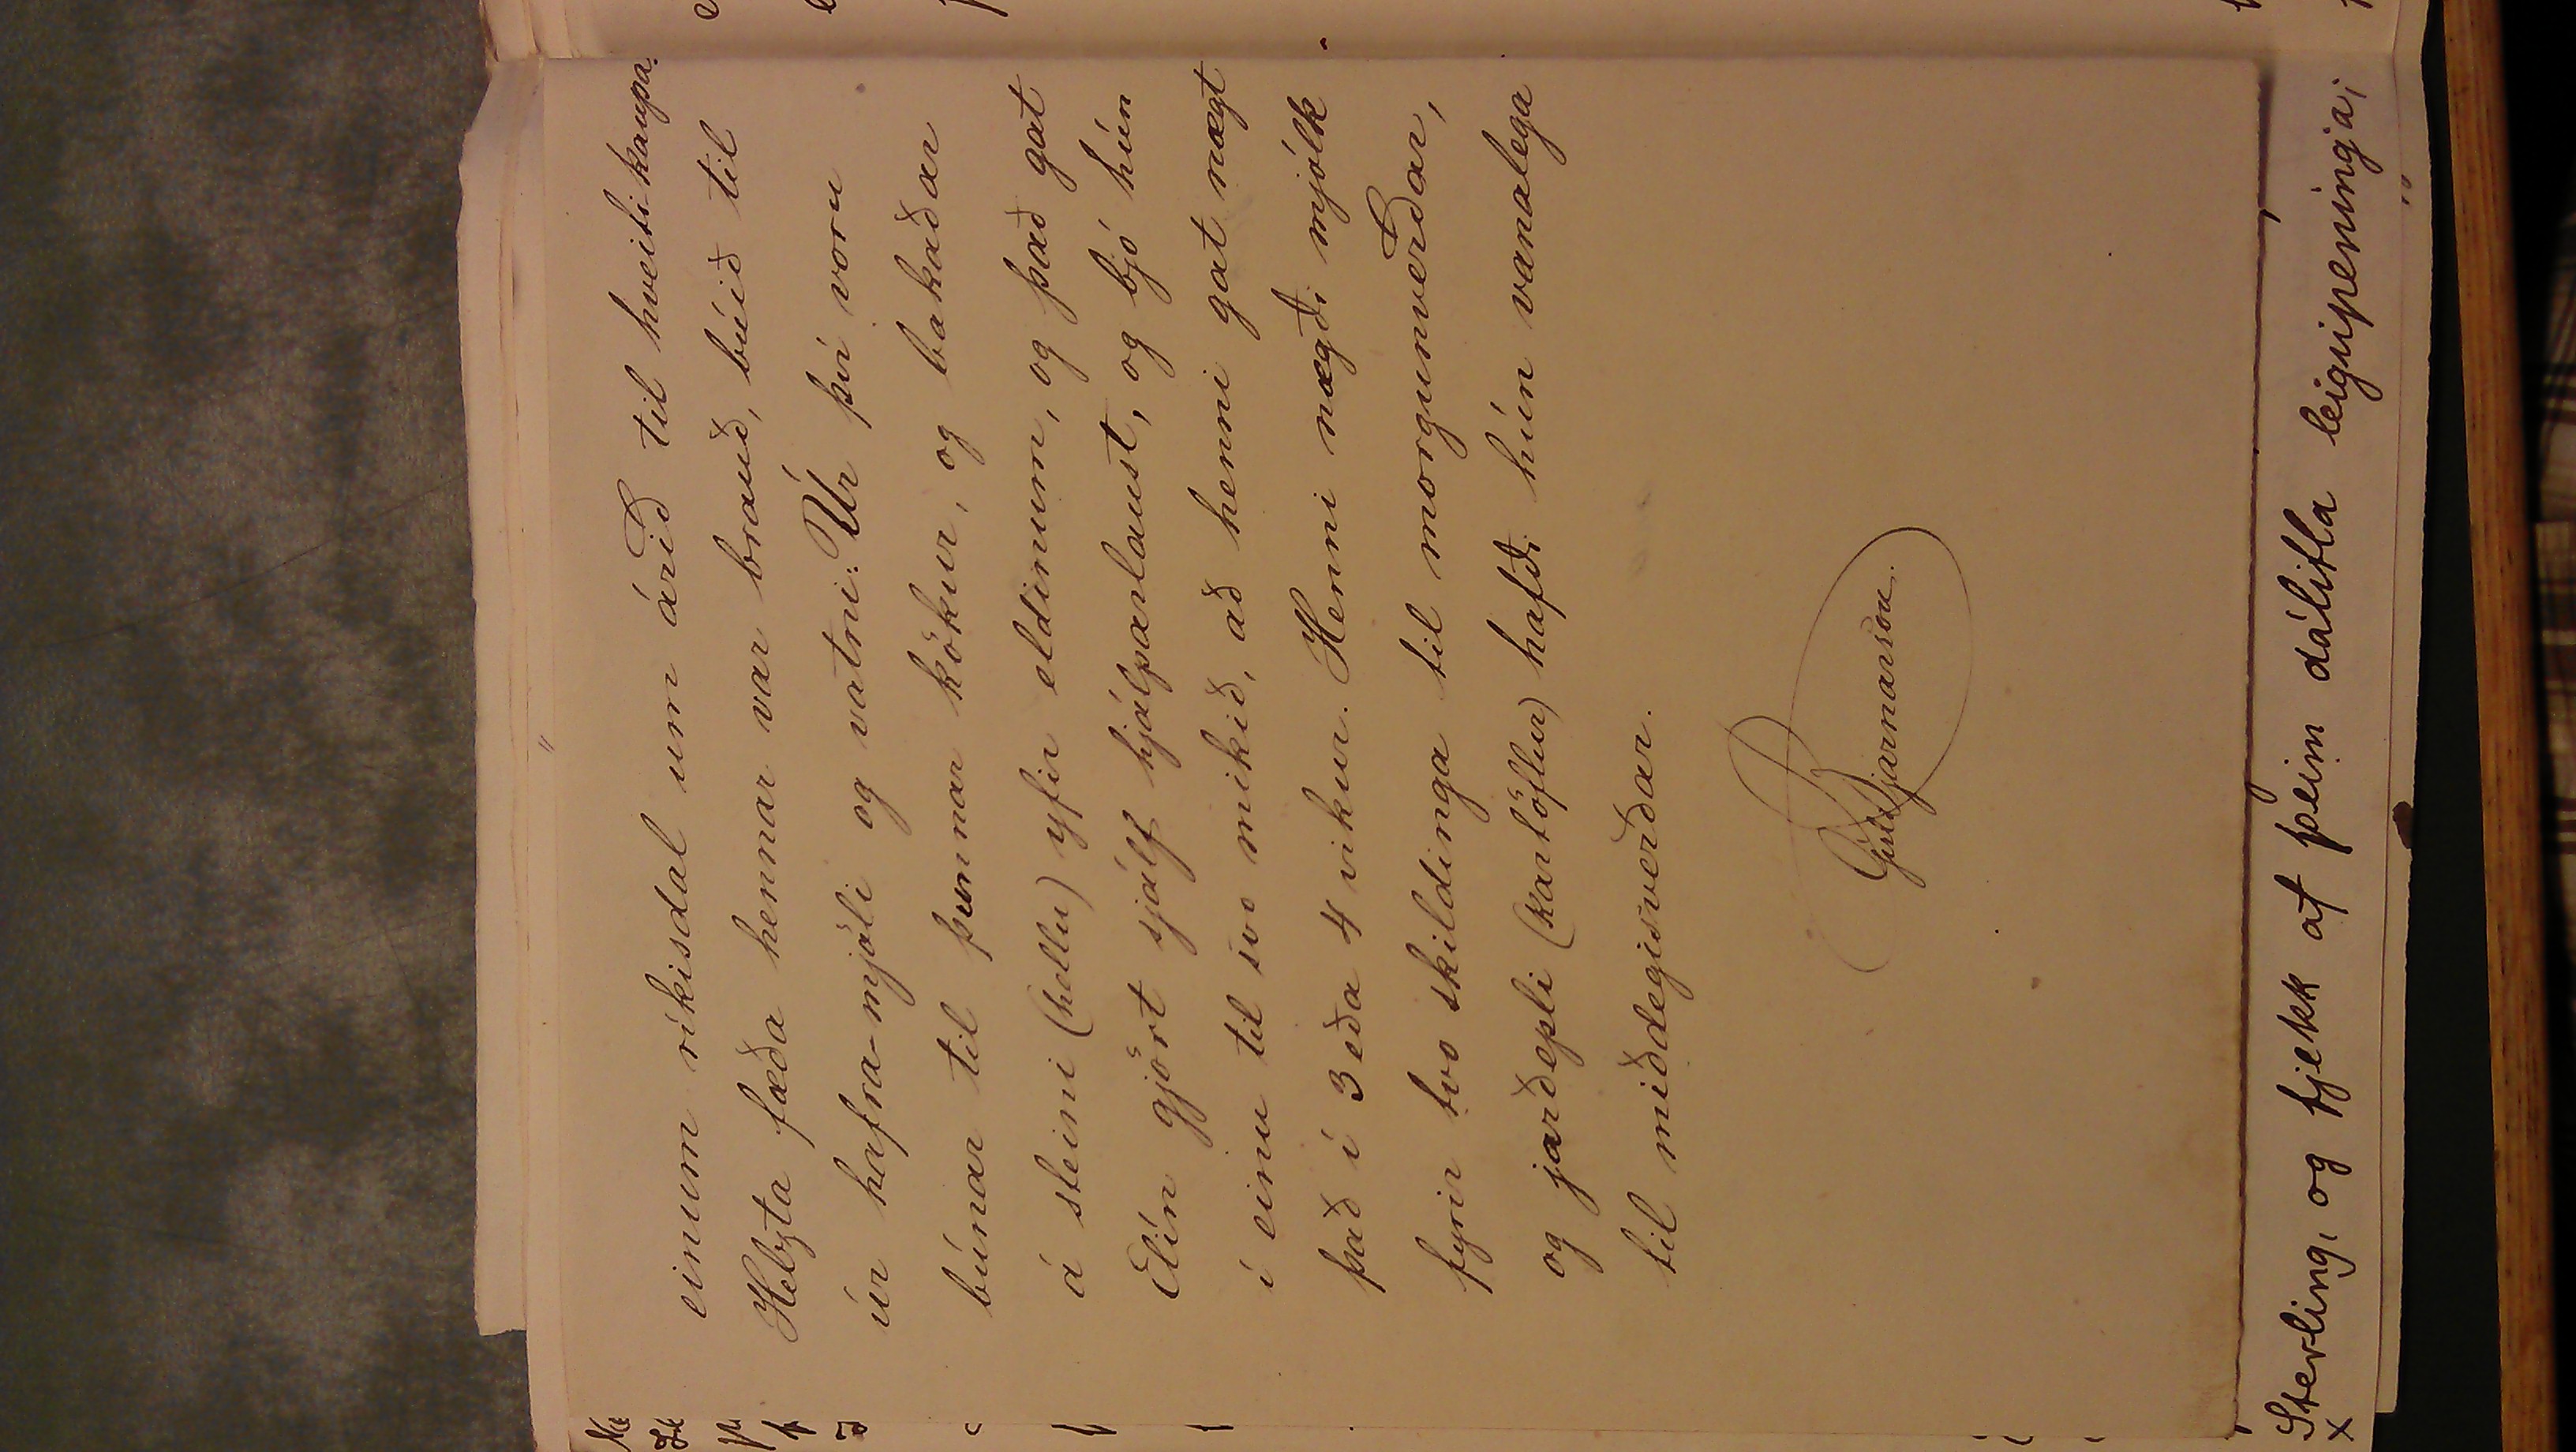 einum ríkisdal um árið til hveitikaupa.
Helzta fæða hennar var brauð, búið til
úr hafra-mjöli og vatni: Úr því voru
búnar til þunnar kökur, og bakaðar
á steini (hellu) yfir eldinum, og það gat
Elín gjört sjálf hjálparlaust, og bjó hún
í einu til svo mikið, að henni gat nægt
það í 3 eða 4 vikur. Henni nægði mjólk
fyrir tvo skildinga til morgunverðar,
og jarðepli (kartöflur) hafði hún vanalega
til miðdegisverðar.
Bjarnarson.
Sterling, og fjekk af þeim dálitla leigupeninga;